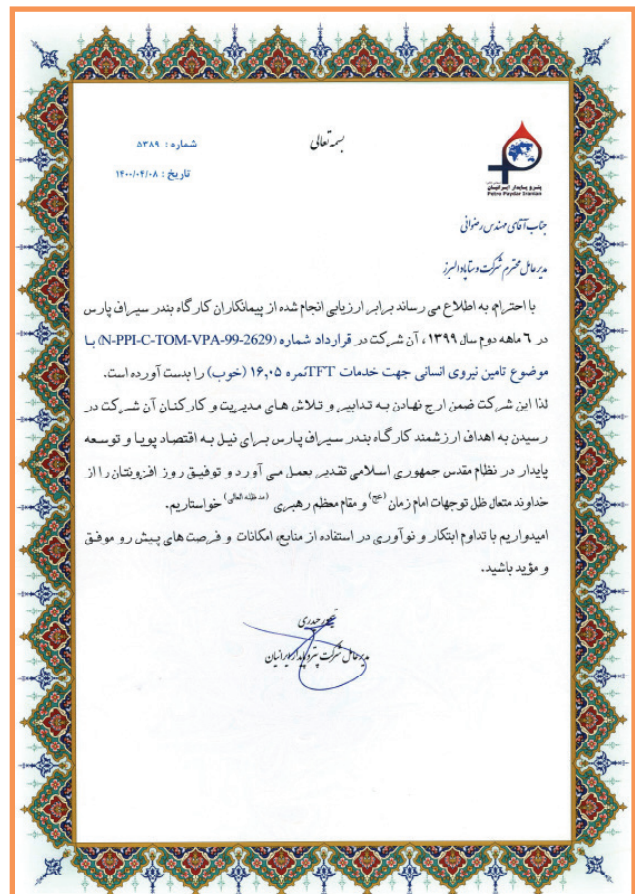 بسمه تعالی
شماره : ۵۳۸۹
تاریخ : ۱۴۰۰/۰۴/۰۸
پترو پایدار ایرانیان
Petro Paydar Iranian
جناب آقای مهندس رضوانی
مدیرعامل محترم شرکت وستاپاد البرز
با احترام، به اطلاع می رساند برابر ارزیابی انجام شده از پیمانکاران کارگاه بندر سیراف پارس
در ٦ ماهه دوم سال ۱۳۹۹ ، آن شرکت در قرارداد شماره (N-PPI-C-TOM-VPA-99-2629) با
موضوع تامین نیروی انسانی جهت خدمات TFT نمره ۱۶,۰۵ (خوب) را بدست آورده است.
لذا این شرکت ضمن ارج نهادن به تدابیر و تلاش های مدیریت و کارکنان آن شرکت در
رسیدن به اهداف ارزشمند کارگاه بندر سیراف پارس برای نیل به اقتصاد پویا و توسعه
پایدار در نظام مقدس جمهوری اسلامی تقدیر بعمل می آورد و توفیق روز افزونتان را از
خداوند متعال ظل توجهات امام زمان (عج) و مقام معظم رهبری (مدظله العالی) خواستاریم.
امیدواریم با تداوم ابتکار و نوآوری در استفاده از منابع، امکانات و فرصت های پیش رو موفق
و مؤید باشید.
حیدری
مدیرعامل شرکت پترو پایدار ایرانیان